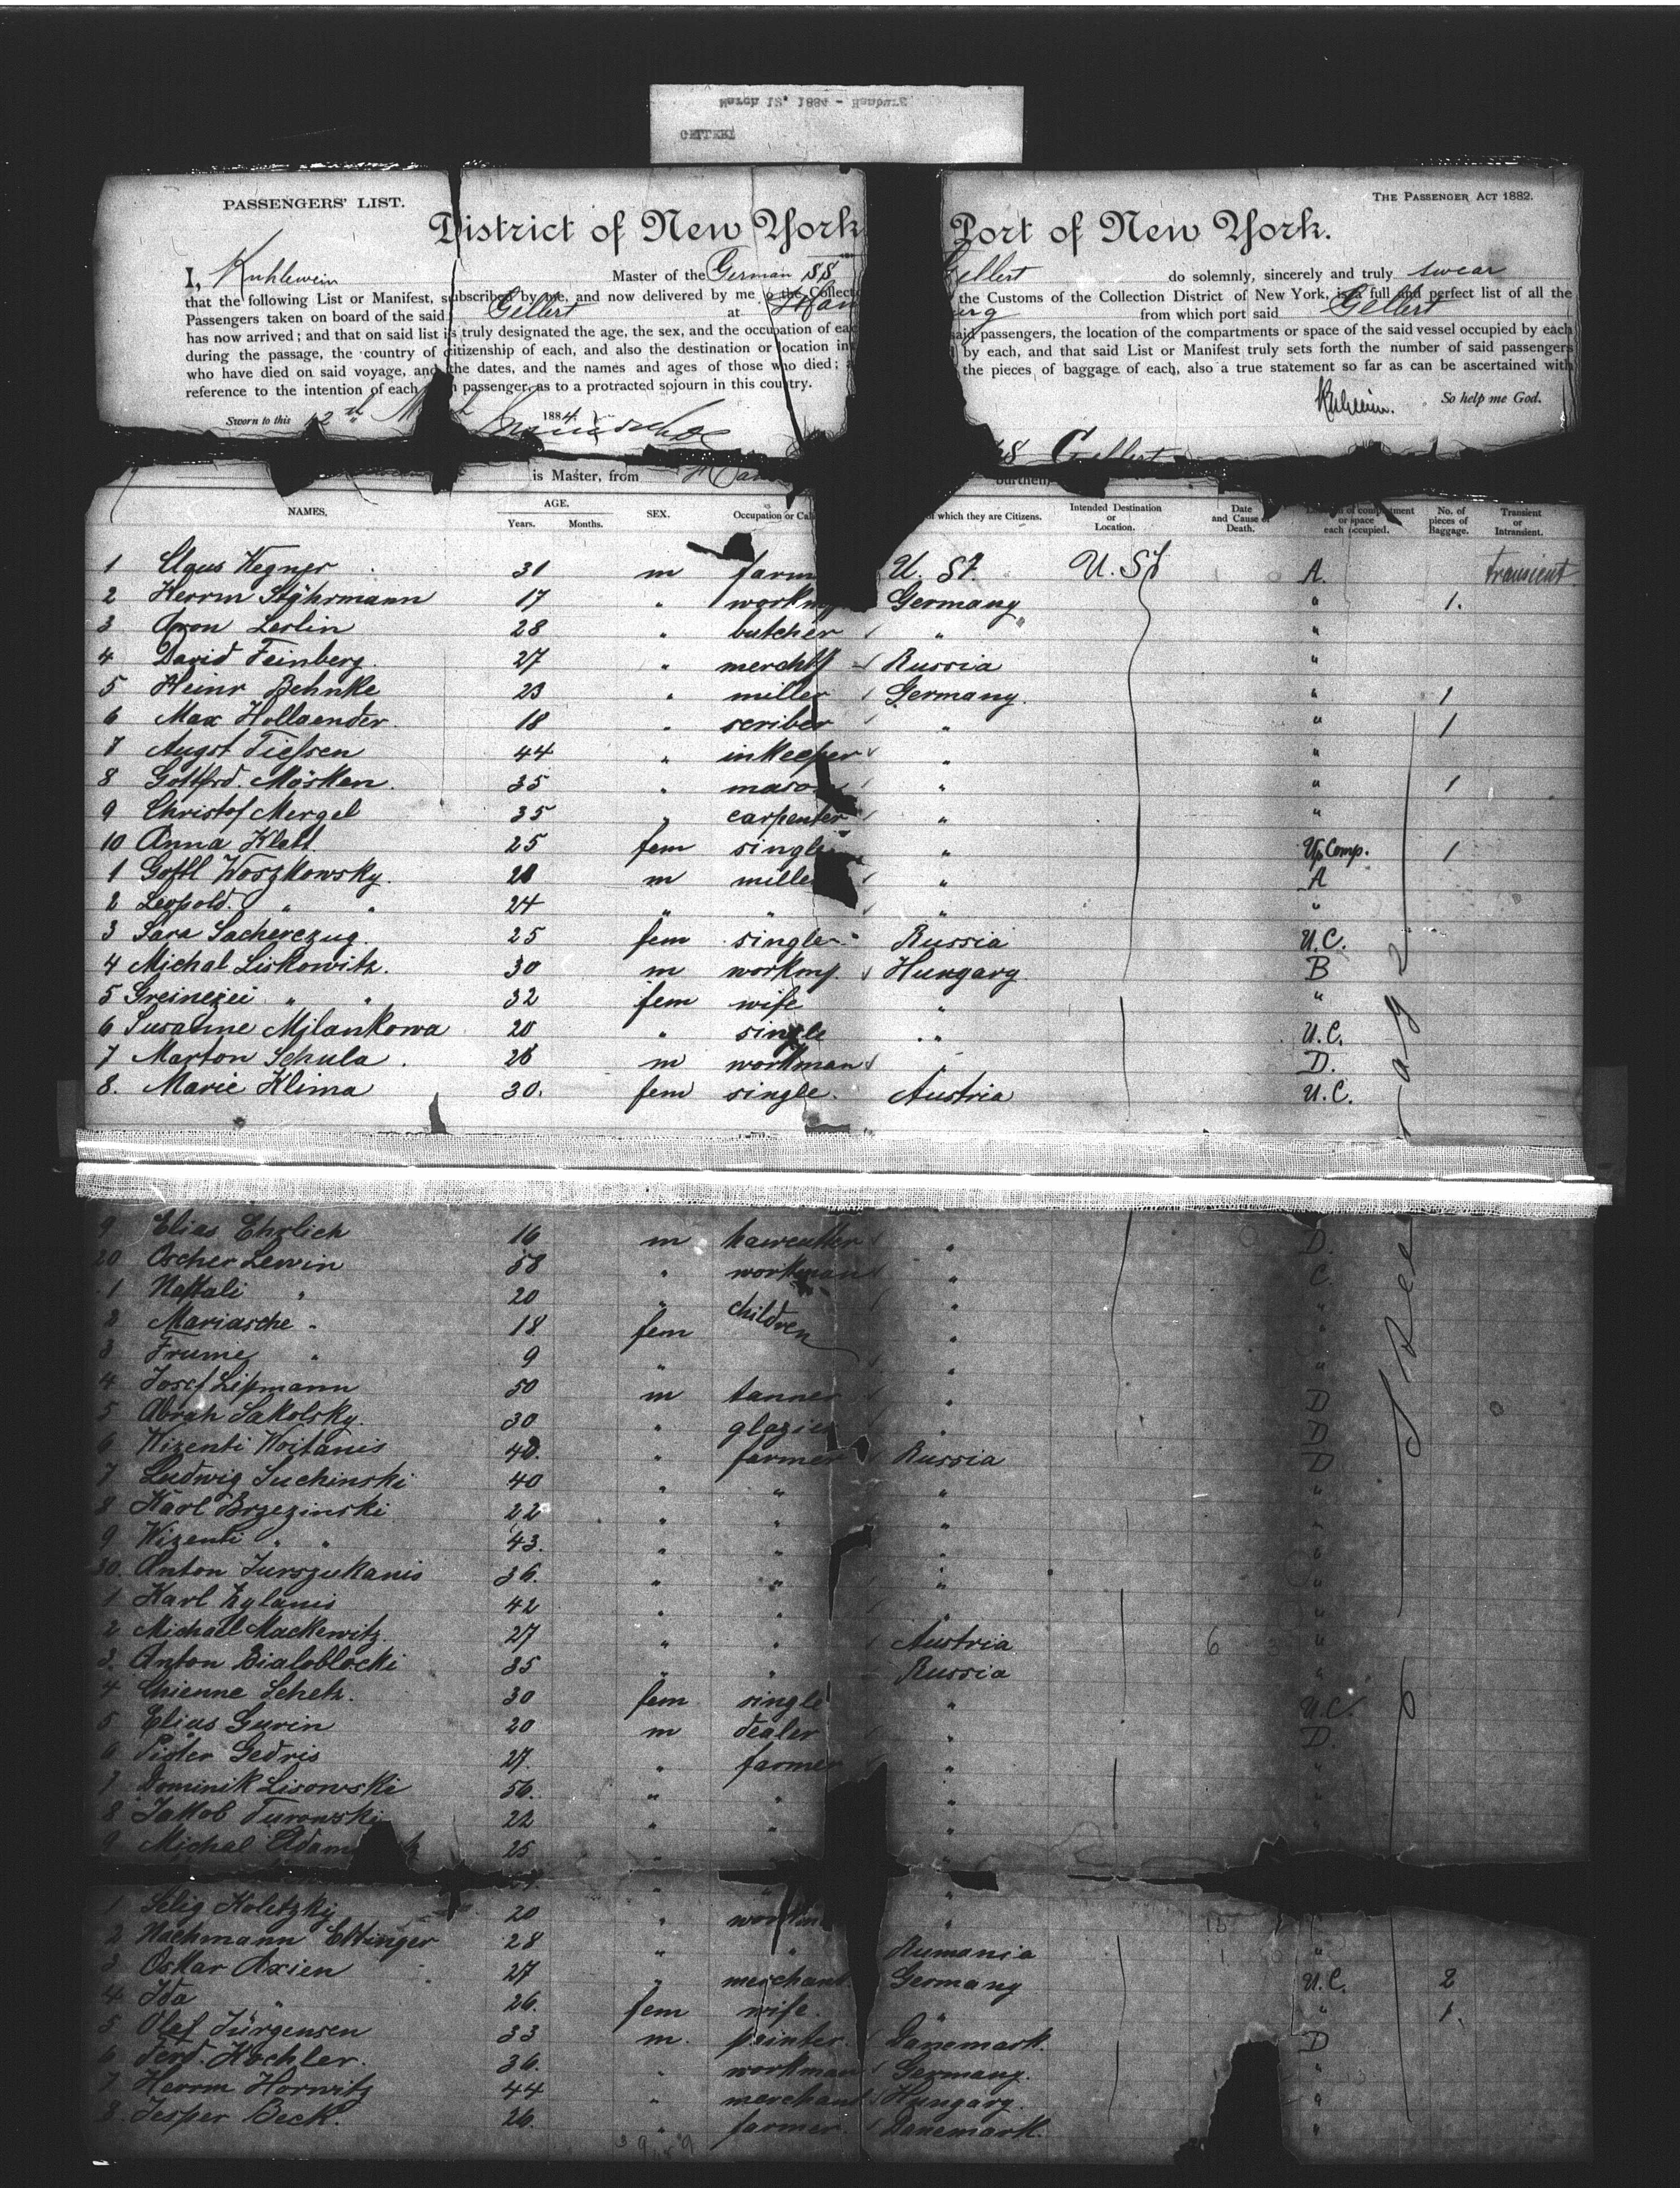 March 12, 1884 - Hamburg
GELLERT
PASSENGERS' LIST.
THE PASSENGER ACT 1882.
District of New York Port of New York.
I, Kuhlewein Master of the German SS Gellert do solemnly, sincerely and truly swear
that the following List or Manifest, subscribed by me, and now delivered by me to the Collect the Customs of the Collection District of New York, is a full and perfect list of all the
Passengers taken on board of the said Gellert at Ham urg from which port said Gellert
has now arrived; and that on said list is truly designated the age, the sex, and the occupation of eac said passengers, the location of the compartments or space of the said vessel occupied by each
during the passage, the country of citizenship of each, and also the destination or location in by each, and that said List or Manifest truly sets forth the number of said passengers
who have died on said voyage, and the dates, and the names and ages of those who died; a the pieces of baggage of each, also a true statement so far as can be ascertained with
reference to the intention of each passenger as to a protracted sojourn in this country.
So help me God.
Sworn to this 12th 1884
SS Gellert
is Master, from burthen
NAMES. AGE. Years. Months. SEX. Occupation or Cal of which they are Citizens. Intended Destination or Location. Date and Cause of Death. of compartment or space each occupied. No. of pieces of Baggage. Transient or Intransient.
1 Claus Wegner 31 m farm U. St. U. St A. transient
2 Herrm Stöhrmann 17 " workm Germany " 1.
3 Aron Leslin 28 " butcher " "
4 David Feinberg. 27 " mercht Russia "
5 Heinr Behnke 23 " miller Germany. " 1
6 Max Hollaender. 18 " scriber " " 1
7 Augst Tießen 44 " inkeeper " "
8 Gottfrd. Mösken. 35 " maso " " 1
9 Christof Mergel 35 " carpenter " "
10 Anna Klett 25 fem single " Up Comp. 1
1 Gottl Woszkowsky. 28 m mille " A
2 Leopold " " 24 " " " "
3 Sara Sacherczug. 25 fem single Russia U.C.
4 Michal Liskowitz. 30 m workm. Hungary. B
5 " " 32 fem wife " "
6 Susanne Mjlankowa 20 " single " U.C.
7 Marton Schula 26 m workman " D.
8. Marie Klima 30. fem single. Austria U.C.
9 Elias Ehrlich 16 m " D.
20 Oscher Lewin 58 " workman " C.
1 Naftali " 20 " children " "
2 Mariasche " 18 fem " "
3 Frume " 9 " " "
4 Josef Lipmann 50 m tanner " D
5 Abrah Sakolsky. 30 " glazier " D
6 Wizenti Woitanis 40. " farmer Russia D
7 Ludwig Suchinski 40 " " " "
8 Karl Brzezinski 22 " " " "
9 Wizenti " " 43. " " " "
30. Anton Jurszukanis 36. " " " "
1 Karl Zylanis 42 " " " "
2 Michael Mackewitz. 27 " " Austria "
3. Anton Bialoblocki 35 " " Russia "
4 Chienne Schetz. 30 fem single " U.C.
5 Elias Gurin 20 m dealer " D.
6 Pioter Gedris 27. " farmer " "
7 Dominik Lisowski 56. " " " "
8 Jakob Turowski 22 " " " "
9 Michal Adam 25 " " "
1 Selig Koletzky 20 " workm " "
2 Nachmann Ettinger 28 " " Rumania "
3 Oskar Axien 27 " merchant. Germany U.C. 2
4 Ida " 26. fem wife. " " 1.
5 Olaf Jürgensen 33 m. painter. Danemark. D
6 Ferd. Kochler. 36. " workman Germany. "
7 Herrm Horwitz 44 " merchant Hungary. "
8. Jesper Beck. 26. " farmer. Danemark. "